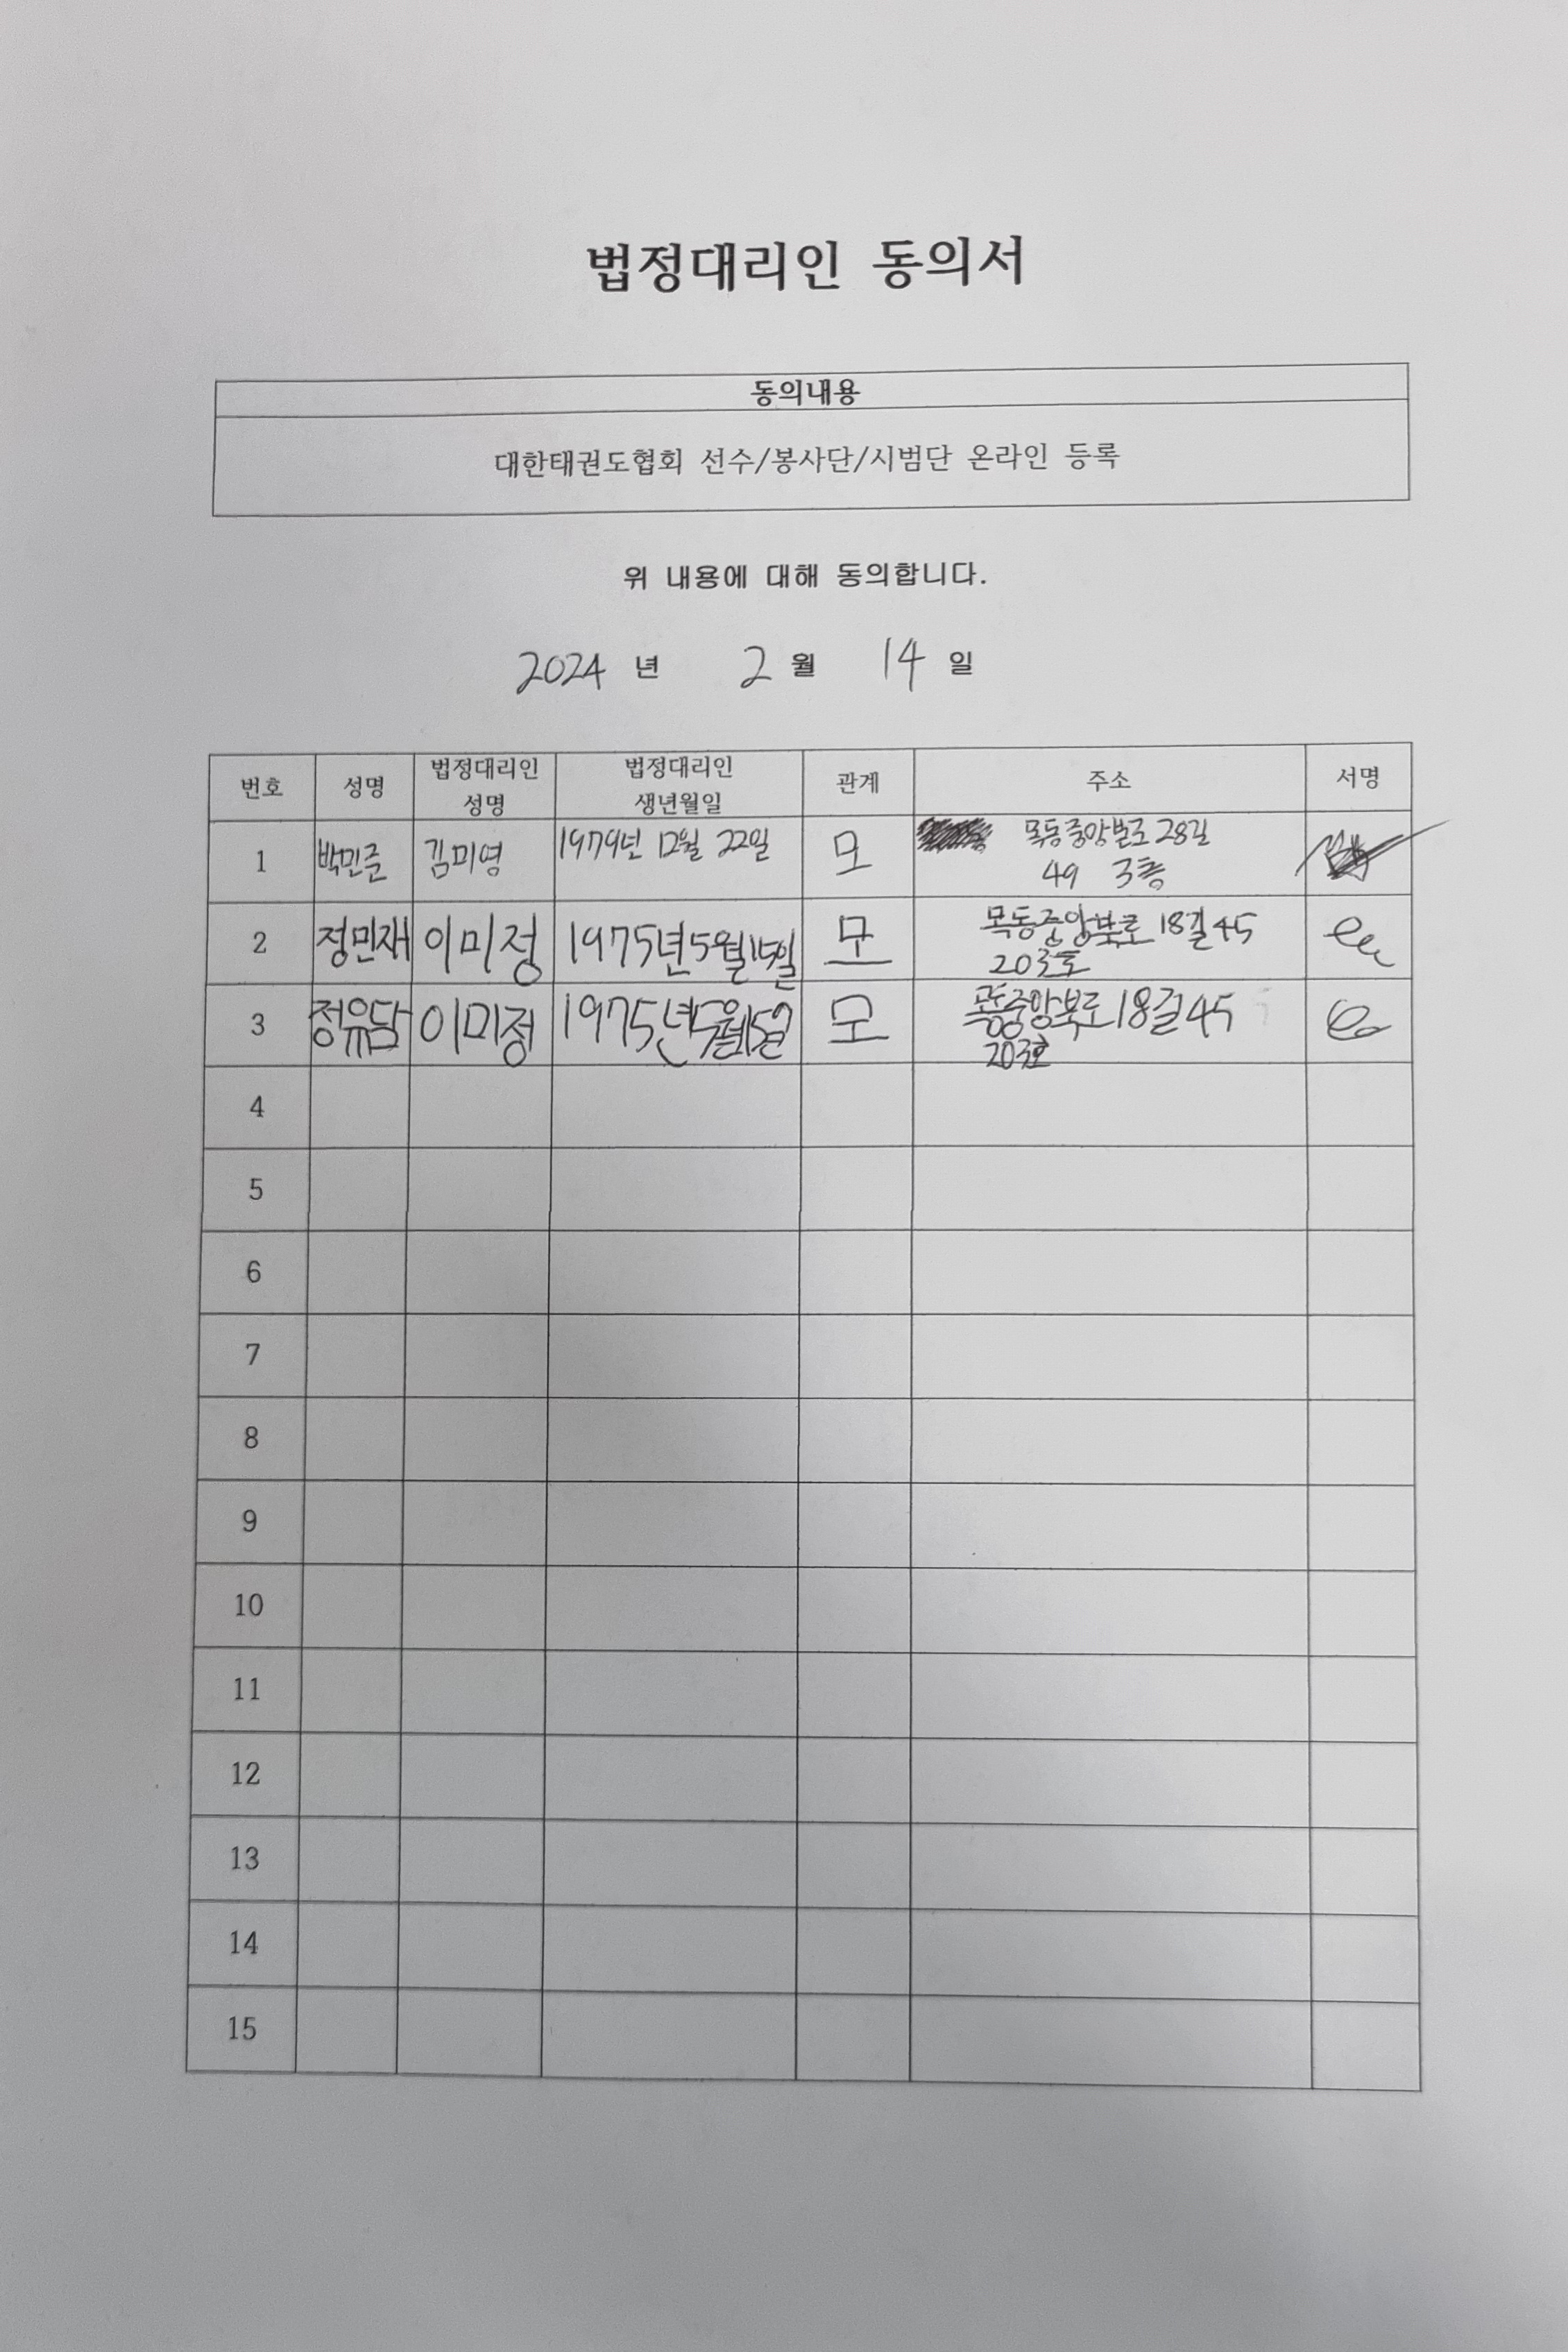 법정대리인 동의서
동의내용
대한태권도협회 선수/봉사단/시범단 온라인 등록
위 내용에 대해 동의합니다.
2024 년 2 월 14 일
번호 성명 법정대리인 성명 법정대리인 생년월일 관계 주소 서명
1 박민준 김미영 1979년 12월 22일 모 목동중앙본로 28길
49 3층
2 정민재 이미정 1975년 5월 15일 모 목동중앙북로 18길 45
203호
3 정유담 이미정 1975년 5월 15일 모 목동중앙북로 18길 45
203호
4
5
6
7
8
9
10
11
12
13
14
15